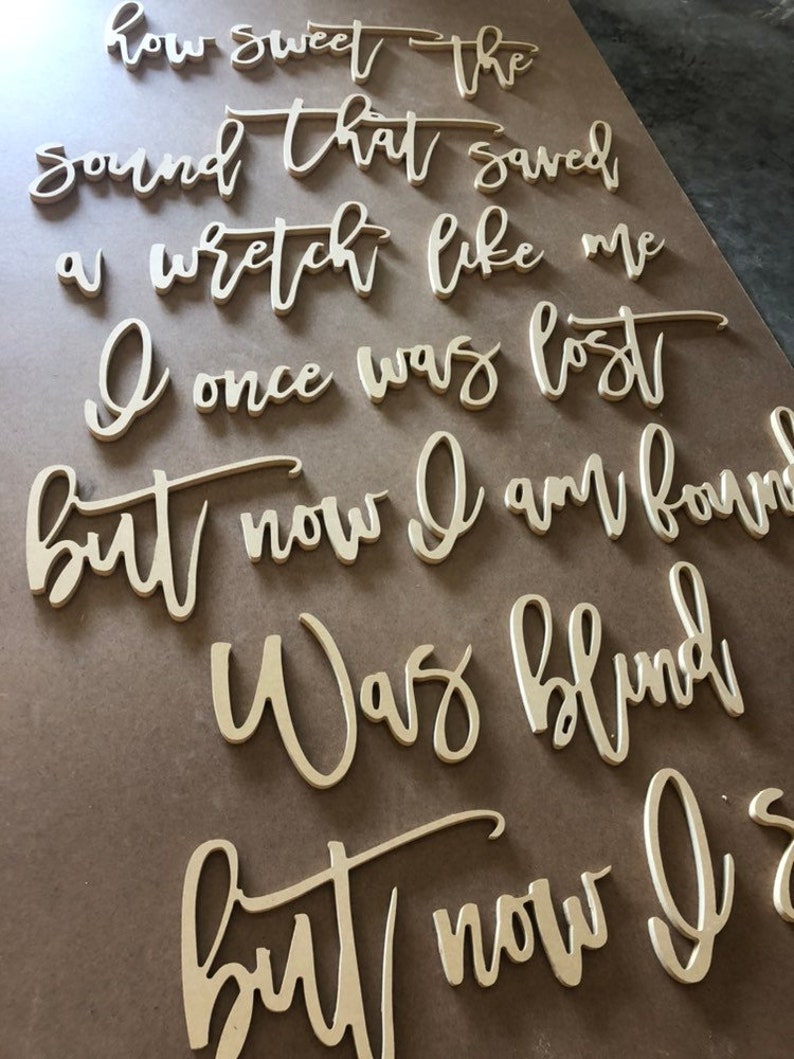 how sweet the
sound that saved
a wretch like me
I once was lost
but now I am found
Was blind
but now I